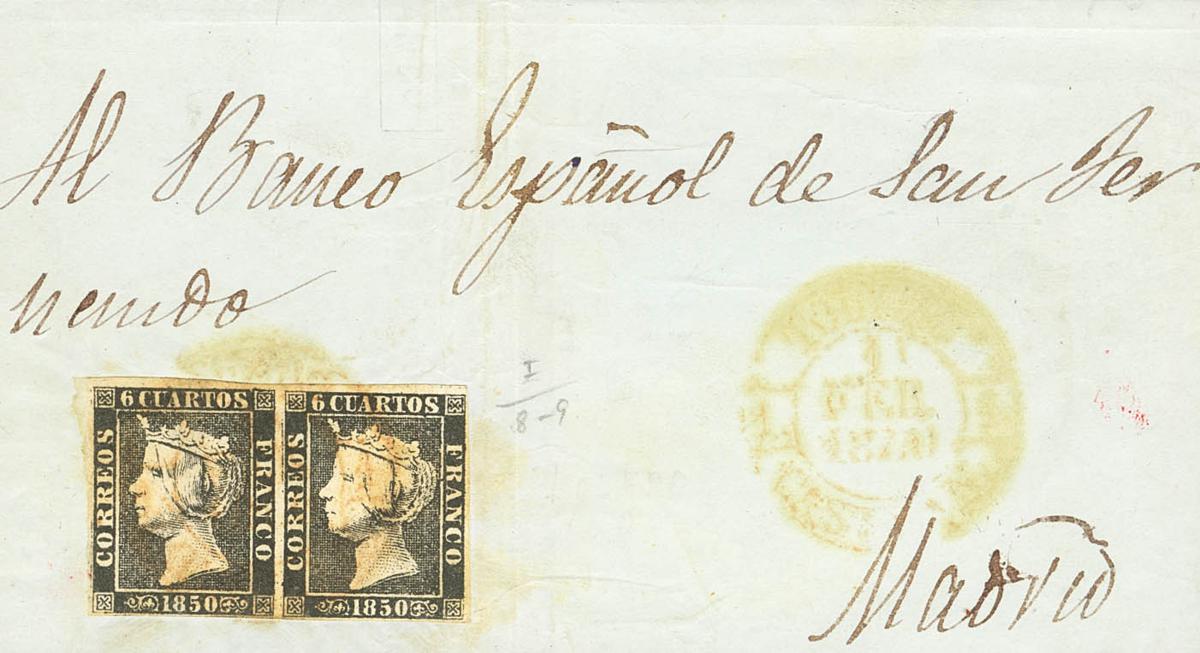 Al Banco Español de San Fer
nando
6 CUARTOS
CORREOS
FRANCO
1850
6 CUARTOS
CORREOS
FRANCO
1850
I
8-9
Madrid